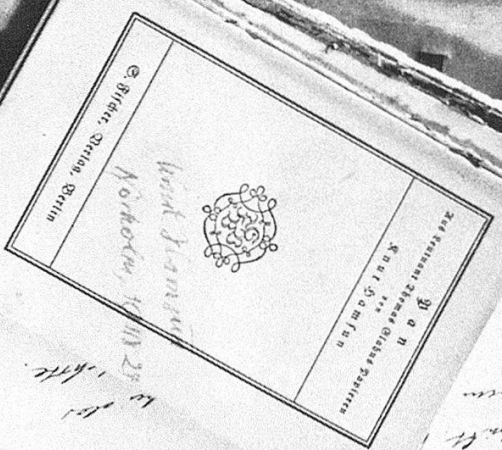 Pan
Aus Leutnant Thomas Glahns Papieren
von
Knut Hamsun
Knut Hamsun
Nörholm,
S. Fischer, Verlag, Berlin